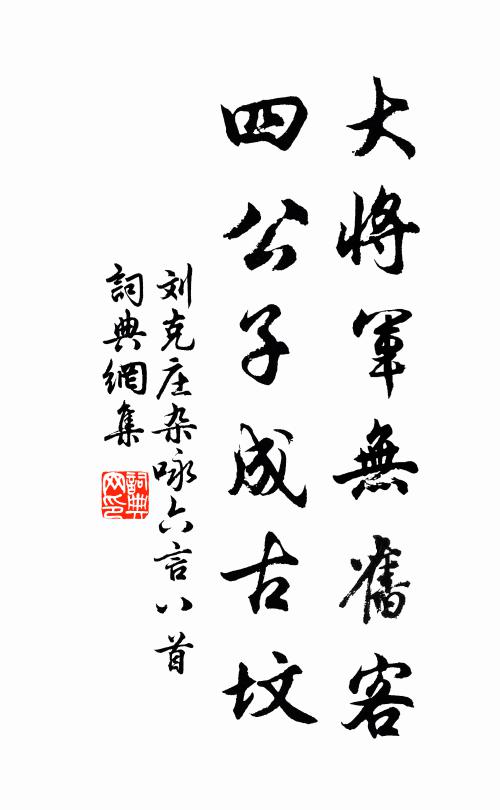 大將軍無舊客
四公子成古坟
刘克庄杂咏六言八首
詞典網集
詞典网印